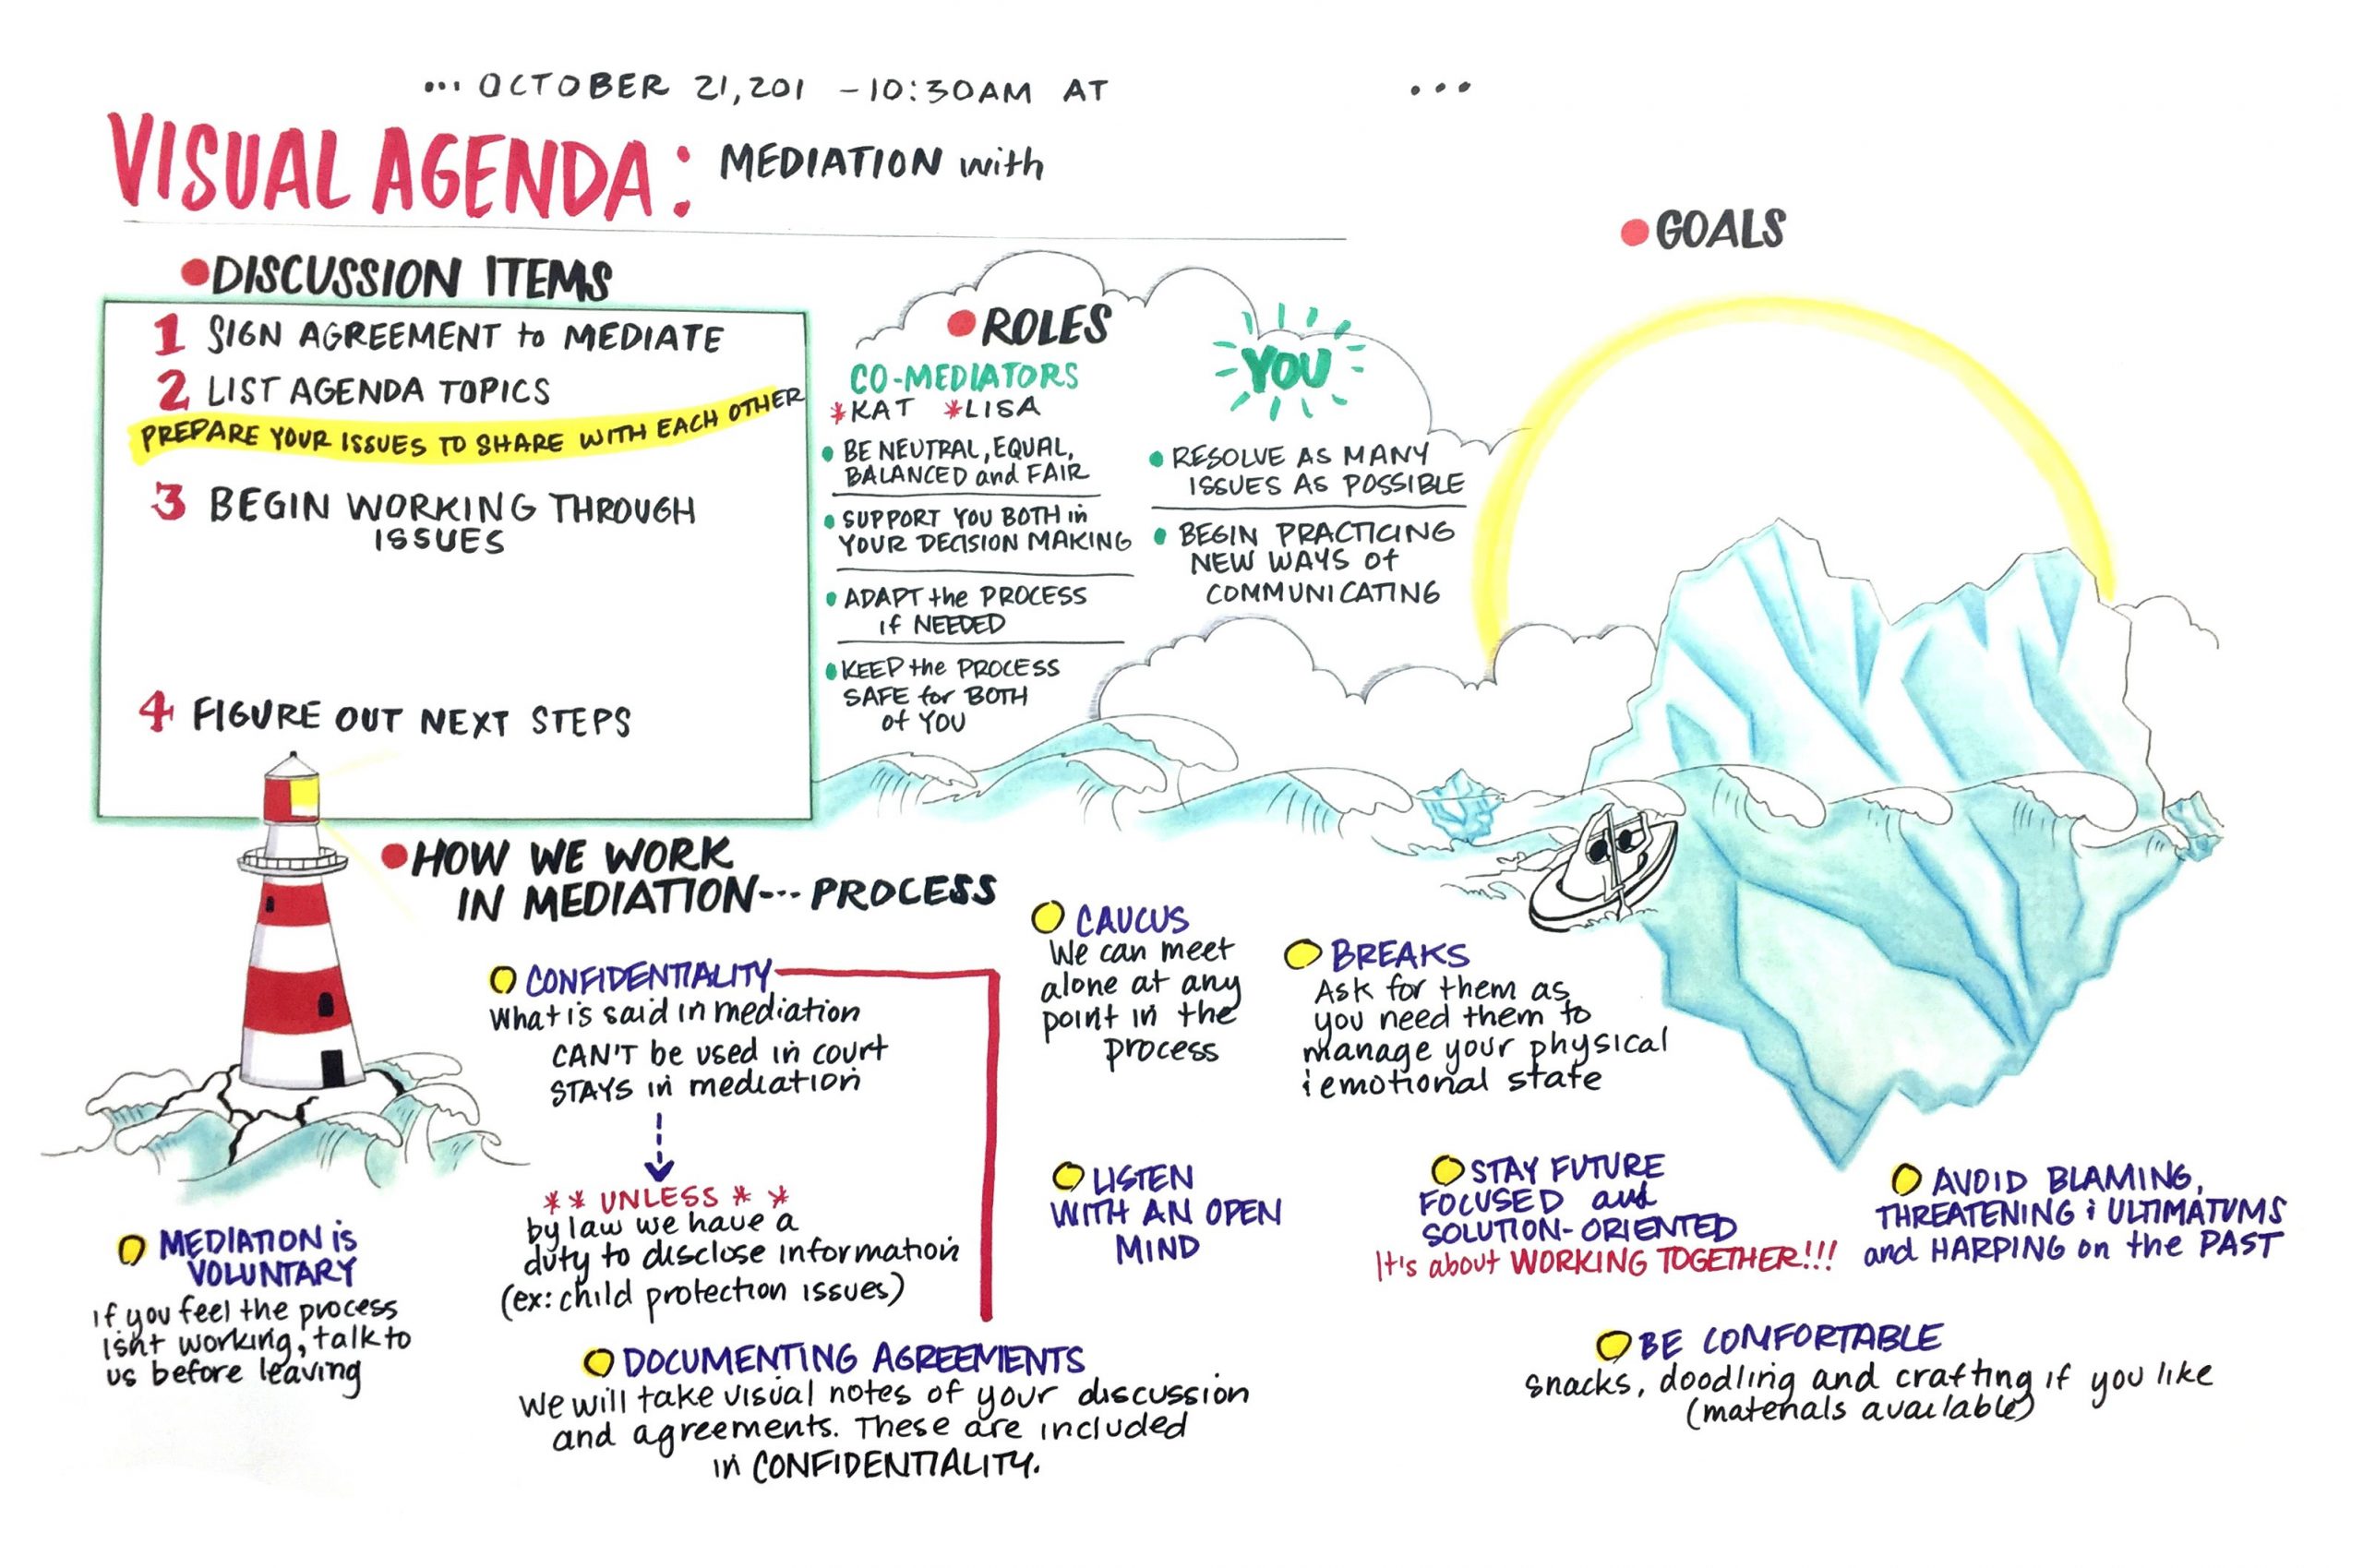 ... OCTOBER 21,201 - 10:30AM AT ...
VISUAL AGENDA: MEDIATION with
• DISCUSSION ITEMS
1 SIGN AGREEMENT to MEDIATE
2 LIST AGENDA TOPICS
PREPARE YOUR ISSUES TO SHARE WITH EACH OTHER
3 BEGIN WORKING THROUGH
ISSUES
4 FIGURE OUT NEXT STEPS
• ROLES
CO-MEDIATORS
*KAT *LISA
• BE NEUTRAL, EQUAL,
BALANCED and FAIR
• SUPPORT YOU BOTH in
YOUR DECISION MAKING
• ADAPT the PROCESS
if NEEDED
• KEEP the PROCESS
SAFE for BOTH
of YOU
YOU
• RESOLVE AS MANY
ISSUES AS POSSIBLE
• BEGIN PRACTICING
NEW WAYS of
COMMUNICATING
• GOALS
• HOW WE WORK
IN MEDIATION--- PROCESS
MEDIATION is
VOLUNTARY
if you feel the process
isn't working, talk to
us before leaving
CONFIDENTIALITY
What is said in mediation
CAN'T be used in court
STAYS in mediation
** UNLESS **
by law we have a
duty to disclose information
(ex: child protection issues)
DOCUMENTING AGREEMENTS
We will take visual notes of your discussion
and agreements. These are included
in CONFIDENTIALITY.
CAUCUS
We can meet
alone at any
point in the
process
BREAKS
Ask for them as
you need them to
manage your physical
& emotional state
LISTEN
WITH AN OPEN
MIND
STAY FUTURE
FOCUSED and
SOLUTION-ORIENTED
It's about WORKING TOGETHER!!!
AVOID BLAMING,
THREATENING & ULTIMATUMS
and HARPING on the PAST
BE COMFORTABLE
snacks, doodling and crafting if you like
(materials available)